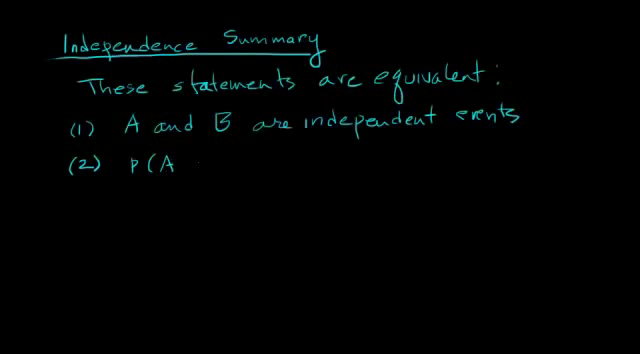 Independence Summary
These statements are equivalent:
(1) A and B are independent events
(2) P(A